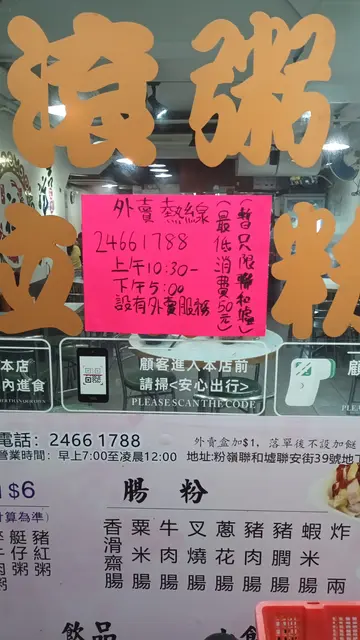 滾粥
立粉
外賣熱線
24661788
上午10:30-
下午5:00
設有外賣服務
(最低消費50元)
(暫只限聯和墟)
本店
內進食
顧客進入本店前
請掃<安心出行>
PLEASE SCAN THE CODE
電話: 2466 1788
外賣盒加$1，落單後不設加餸
營業時間: 早上7:00至凌晨12:00
地址:粉嶺聯和墟聯安街39號地
$6
計算為準)
腸粉
香滑齋腸
粟米腸
牛肉腸
叉燒腸
蔥花腸
豬肉腸
豬膶腸
蝦米腸
炸兩
艇仔粥
豬紅粥
飲品